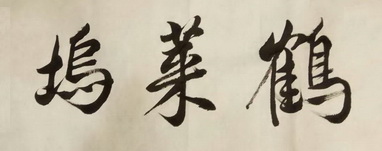 鶴萊塢